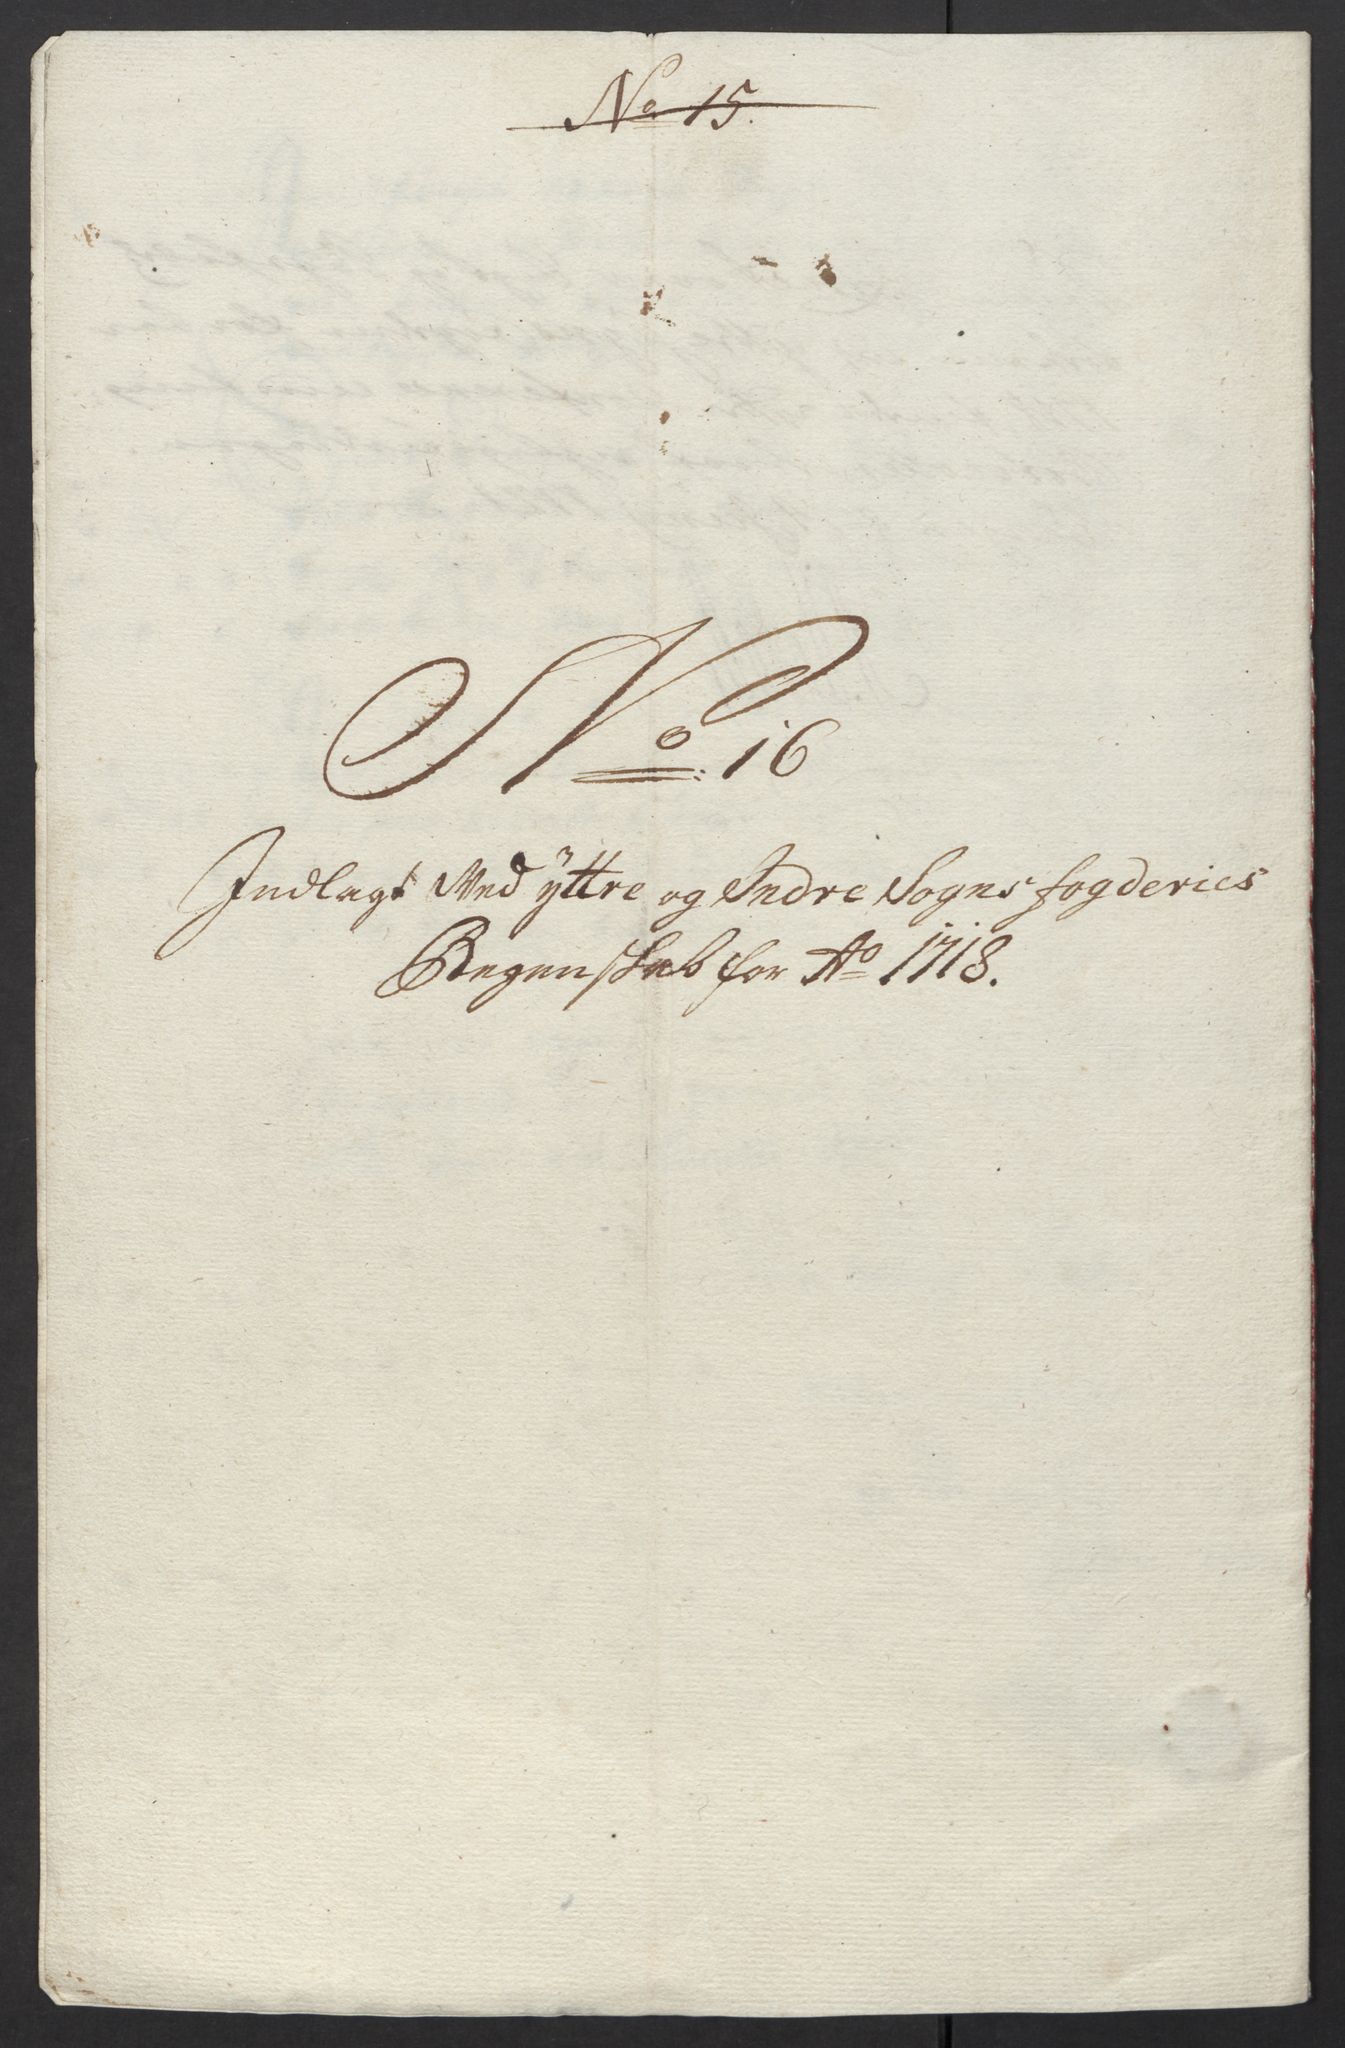 No 15.
No 16
Indlagt Med ÿttre og Indre Sogns fogderies
Regenskab for Ao 1718.